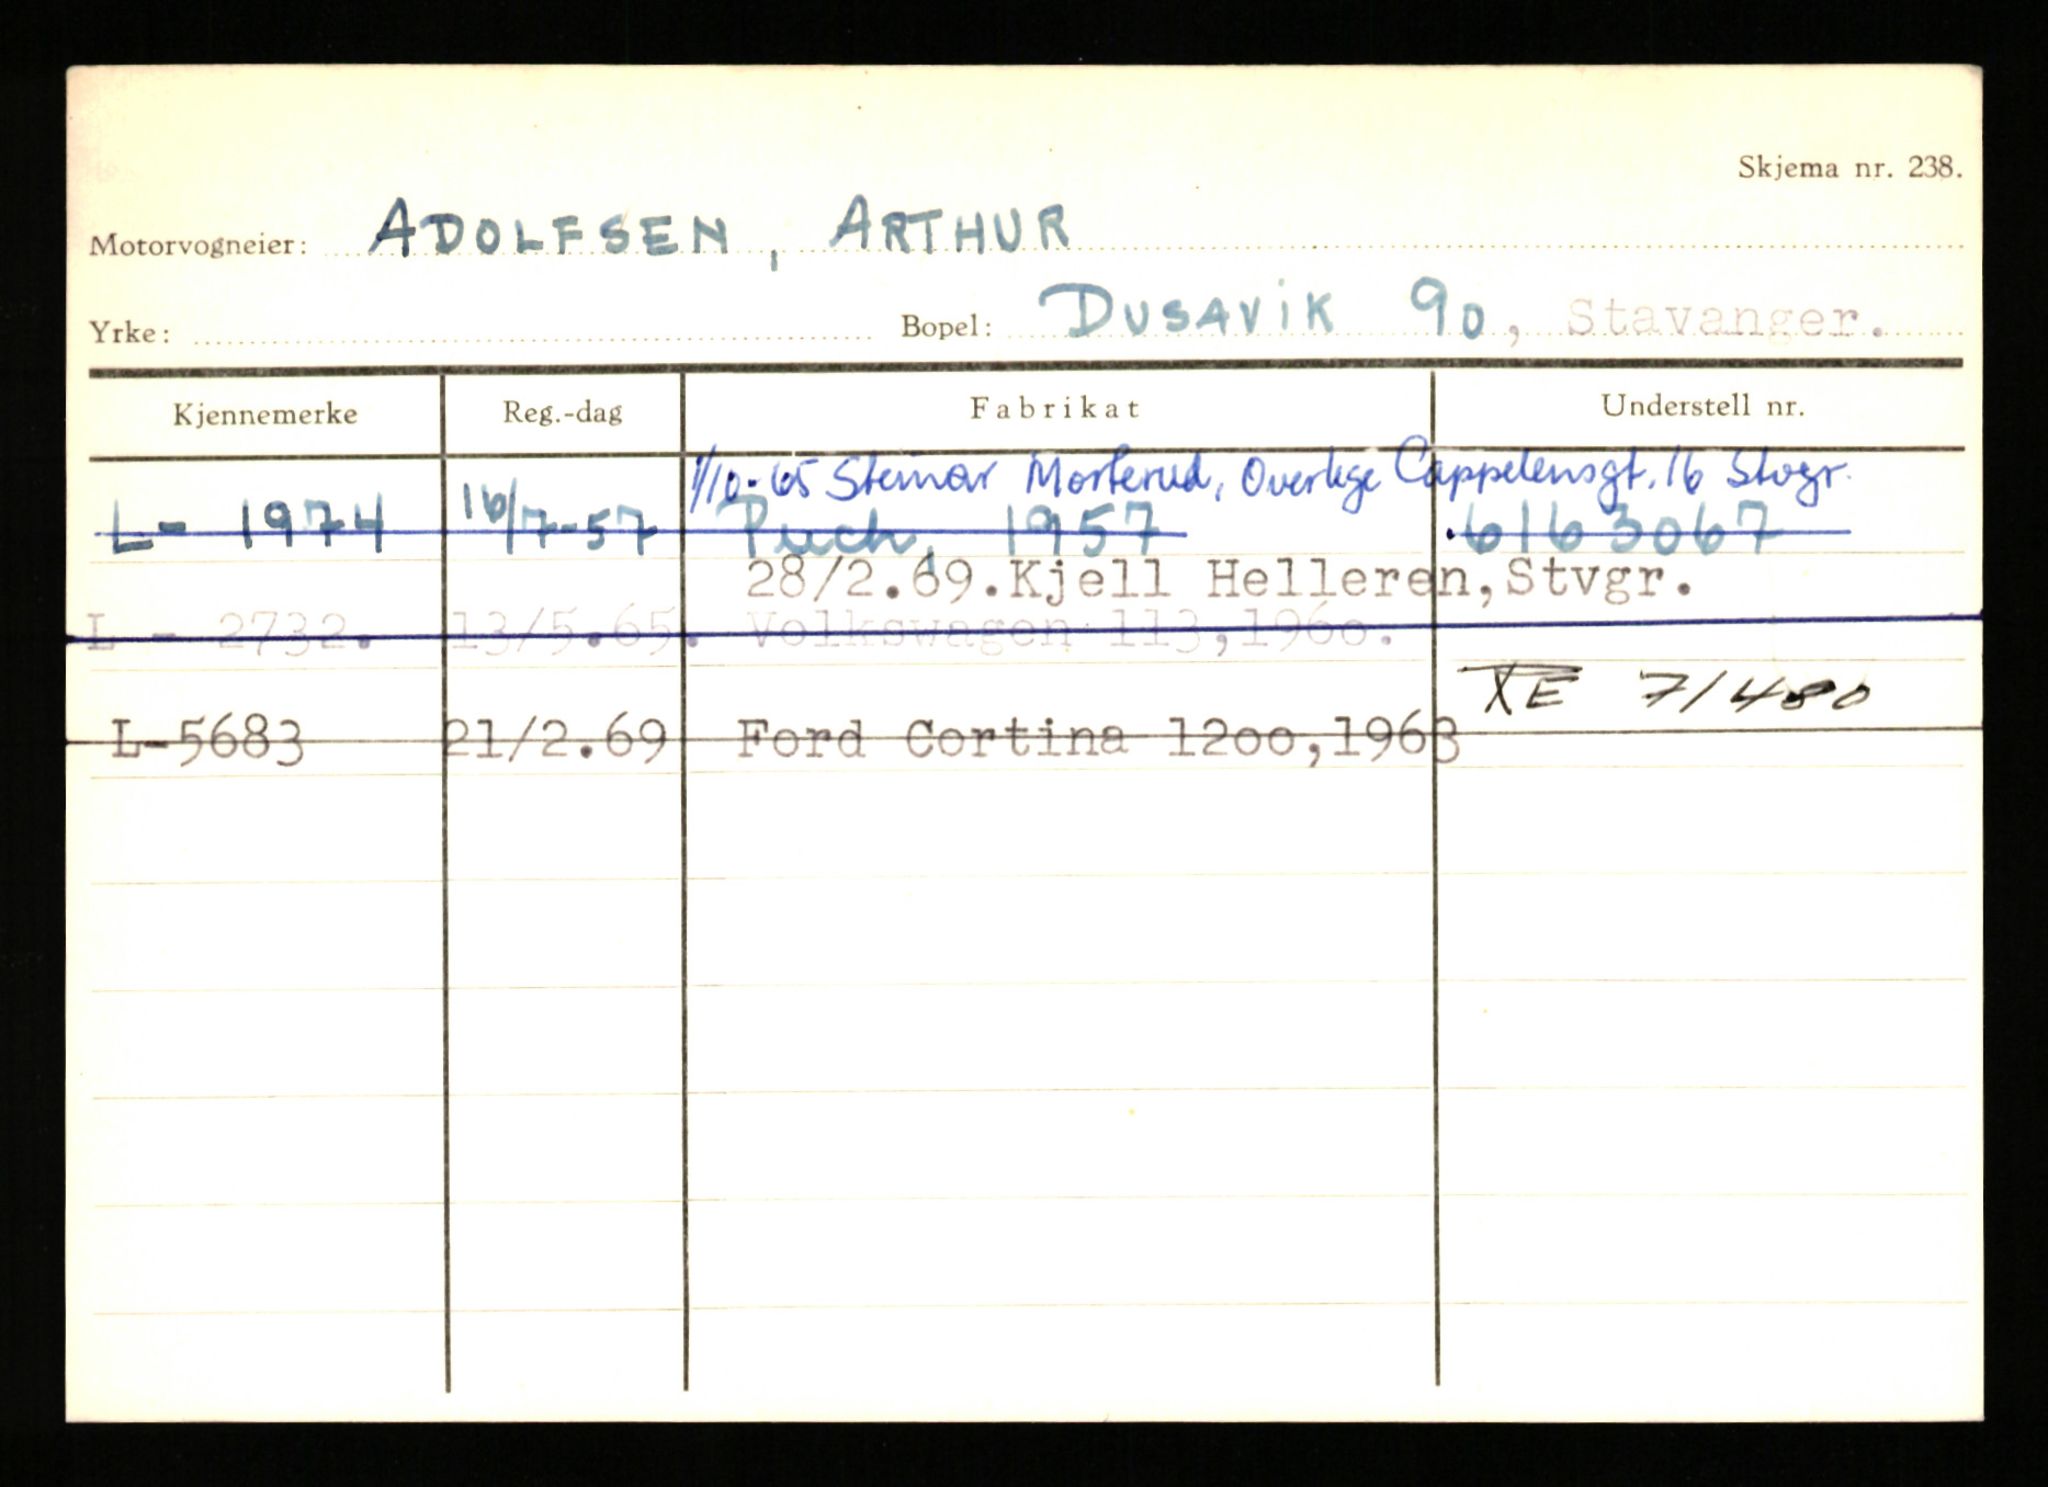 Skjema nr. 238.
Motorvogneier: ADOLFSEN, ARTHUR
Yrke: Bopel: DUSAVIK 90, Stavanger.
Kjennemerke Reg.-dag Fabrikat Understell nr.
1/10-65 Steinar Morterud, Overlege Cappelensgt. 16 Stvgr.
L- 1974 16/7-57 Puch, 1957 6163067
28/2.69.Kjell Helleren,Stvgr.
L - 2732. 13/5.65. Volkswagen 113,1960.
XE 71480
L-5683 21/2.69 Ford Cortina 1200,1963